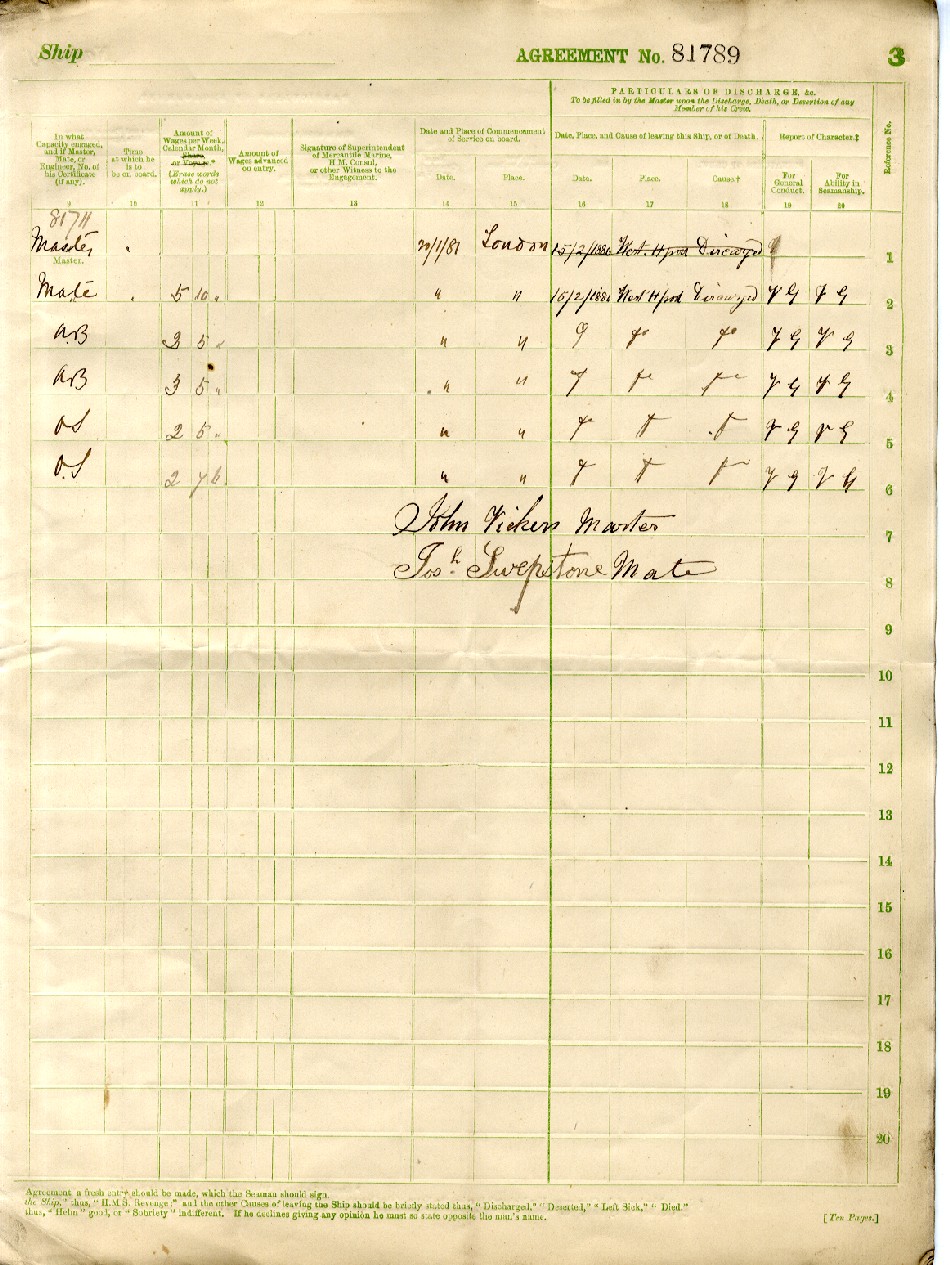 Ship AGREEMENT No. 81789 3
PARTICULARS OF DISCHARGE, &c.
To be filled in by the Master upon the Discharge, Death, or Desertion of any
Member of his Crew.
In what Capacity engaged, and if Master, Mate, or Engineer, No. of his Certificate (if any).
Time at which he is to be on board.
Amount of Wages per Week, Calendar Month, Share, or Voyage.* (Erase words which do not apply.)
Amount of Wages advanced on entry.
Signature of Superintendent of Mercantile Marine, H.M. Consul, or other Witness to the Engagement.
Date and Place of Commencement of Service on board.
Date. Place.
Date, Place, and Cause of leaving this Ship, or of Death.
Date. Place. Cause†
Report of Character.‡
For General Conduct. For Ability in Seamanship.
Reference No.
9 10 11 12 13 14 15 16 17 18 19 20
Master London 15/2/1881 West Hpool 1
Master.
Mate 5 10 " " " 15/2/1881 West Hpool V G V G 2
AB 3 5 " " " V G V G 3
AB 3 5 " " " V G V G 4
OS 2 5 " " " V G V G 5
OS 2 7 6 " " V G V G 6
John Vickers Master 7
Josh Swepstone Mate 8
9
10
11
12
13
14
15
16
17
18
19
20
Agreement a fresh entry should be made, which the Seaman should sign.
the Ship," thus, "H.M.S. Revenge," and the other Causes of leaving the Ship should be briefly stated thus, "Discharged," "Deserted," "Left Sick," "Died."
thus, "Helm" good, or "Sobriety" indifferent. If he declines giving any opinion he must so state opposite the man's name. [Ten Pages.]